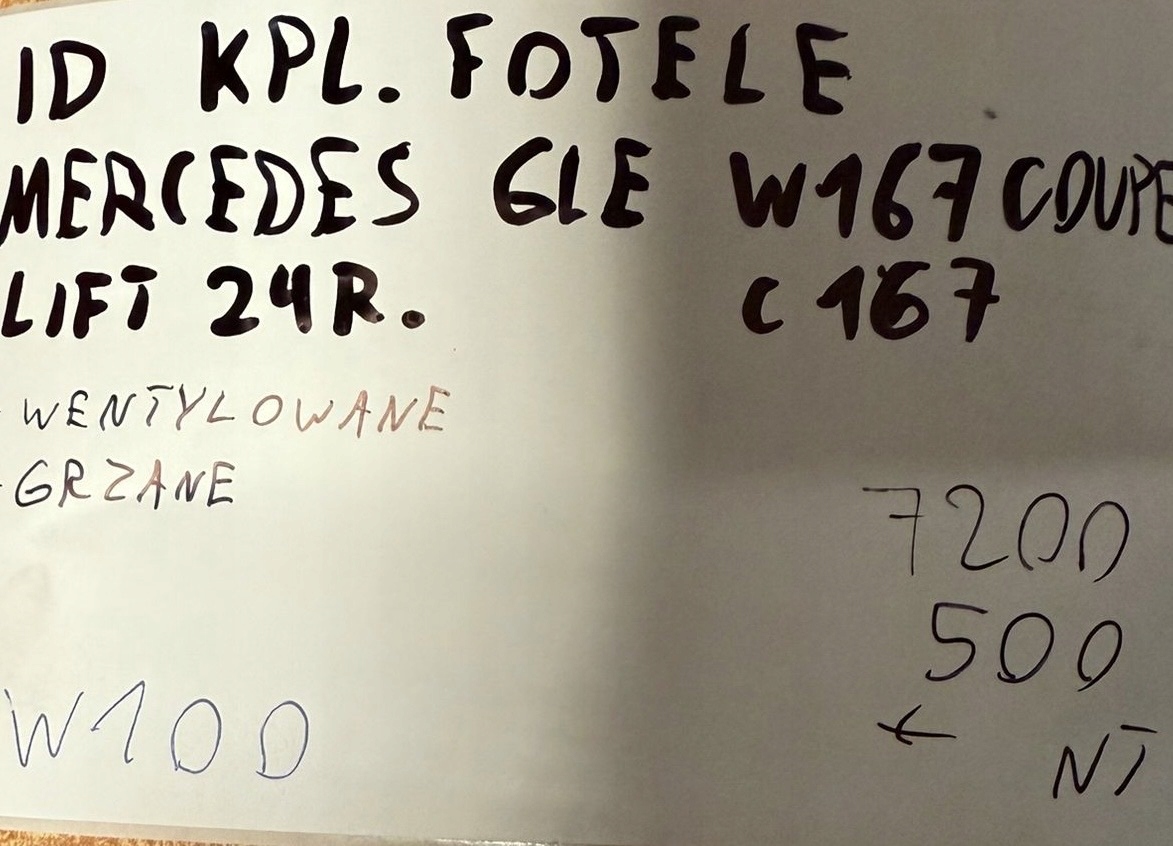 ID KPL. FOTELE
MERCEDES GLE W167 COUPE
LIFT 24R. C167
- WENTYLOWANE
- GRZANE
7200
500
← NT
W100